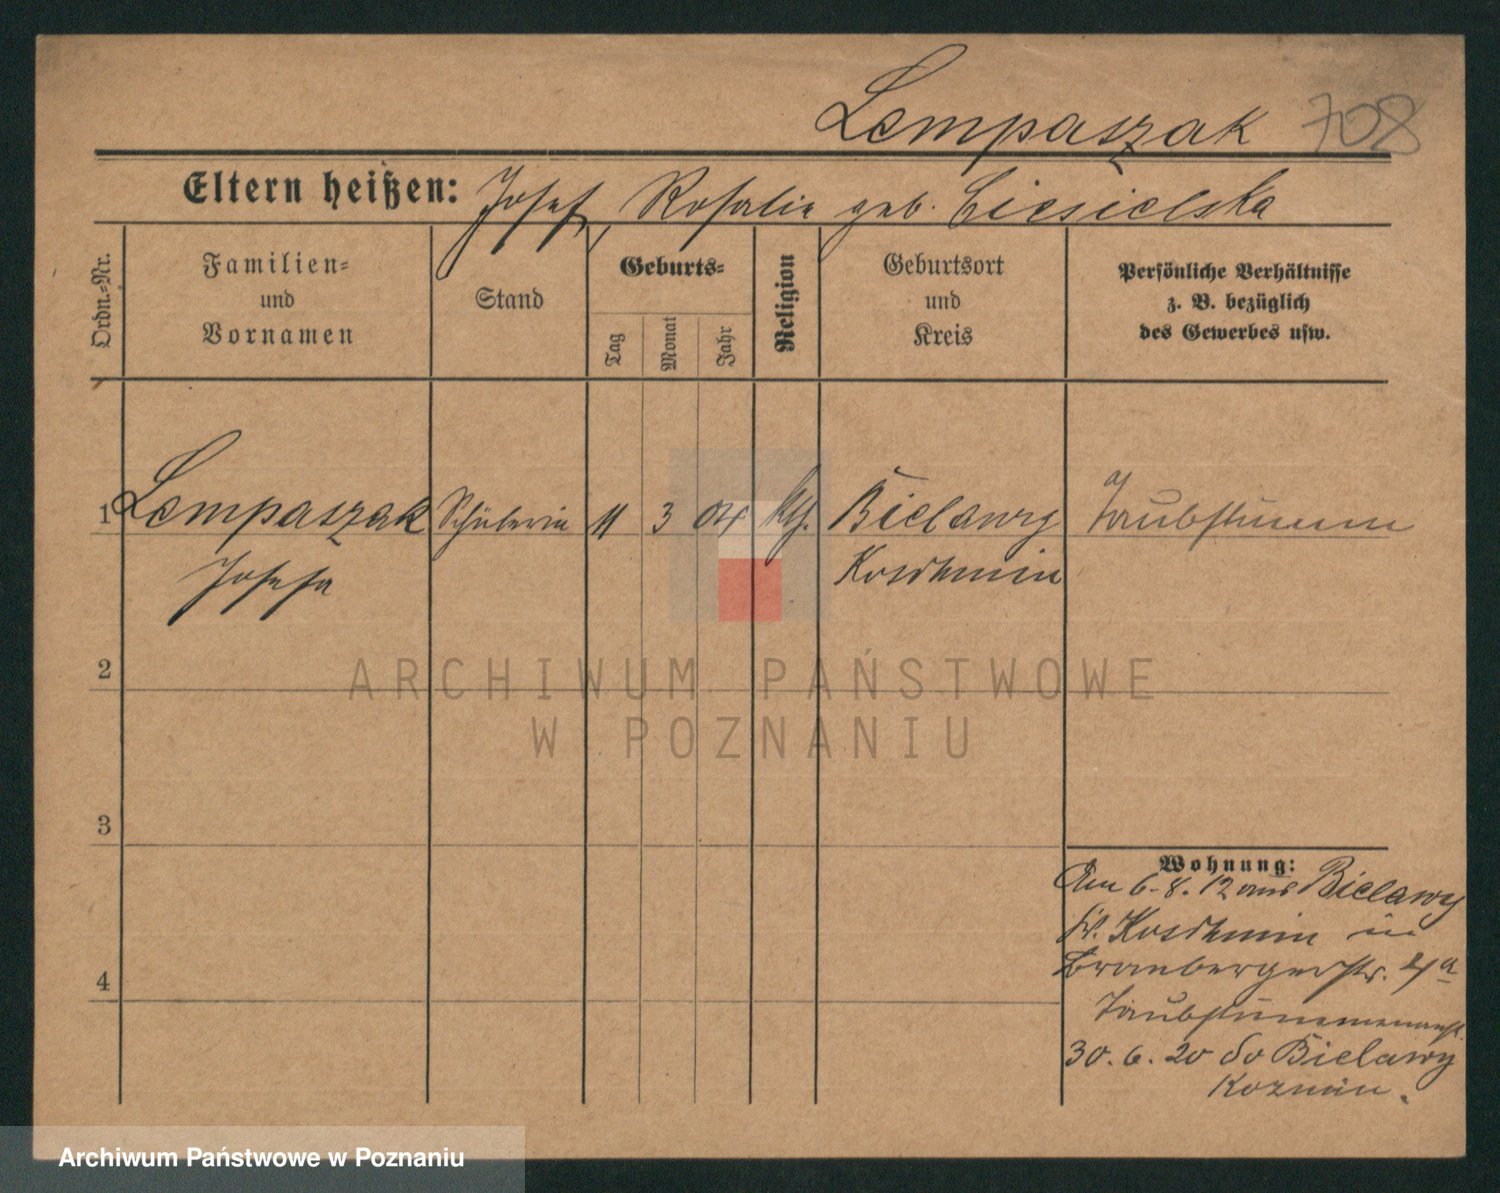 Lempaszak 708
Eltern heißen: Josef, Rosalie geb. Ciesielska
Ordn.=Nr.
Familien=
und
Vornamen
Stand
Geburts=
Tag
Monat
Jahr
Religion
Geburtsort
und
Kreis
Persönliche Verhältnisse
z. B. bezüglich
des Gewerbes usw.
1 Lempaszak Schülerin 11 3 04 kth. Bielawy Taubstumm
Josefa Koschmin
2
ARCHIWUM PAŃSTWOWE
W POZNANIU
3
4
Wohnung:
Am 6.8.12 aus Bielawy
Kr. Koschmin in
Brombergerstr. 4a
Taubstummenanst.
30.6.20 do Bielawy
Kozmin.
Archiwum Państwowe w Poznaniu